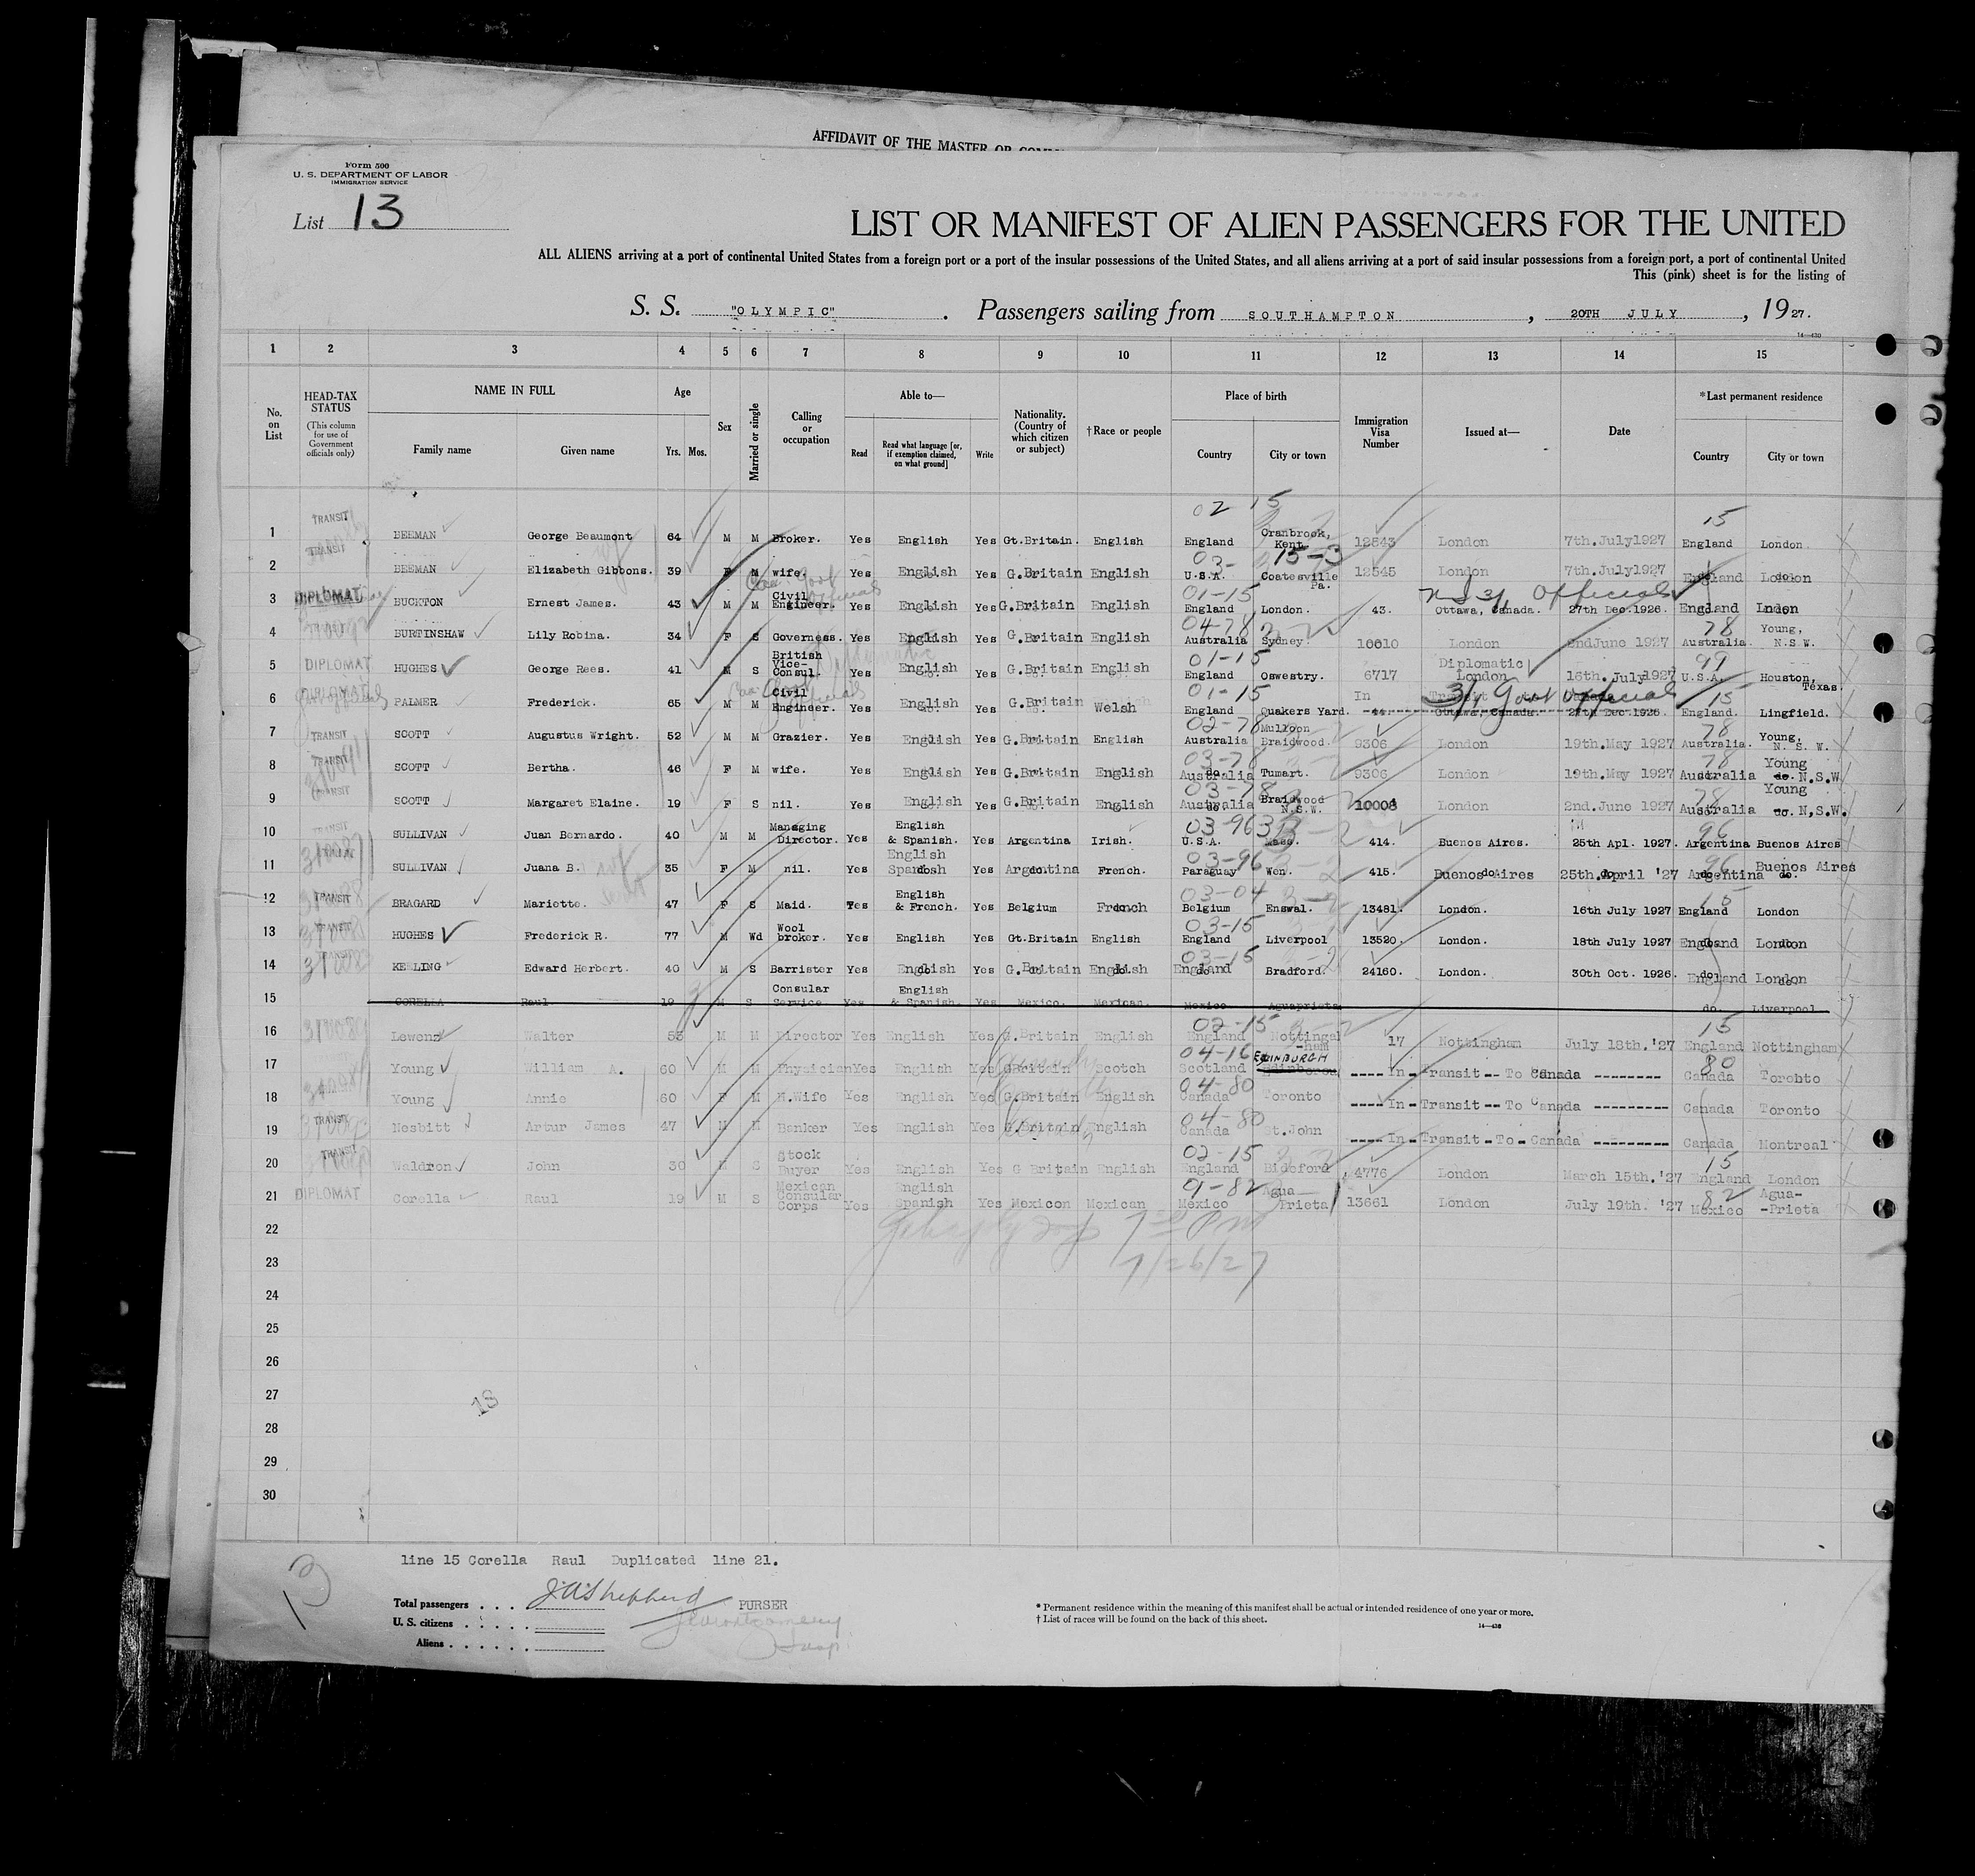 AFFIDAVIT OF THE MASTER OR
Form 500
U. S. DEPARTMENT OF LABOR
IMMIGRATION SERVICE
List 13
LIST OR MANIFEST OF ALIEN PASSENGERS FOR THE UNITED
ALL ALIENS arriving at a port of continental United States from a foreign port or a port of the insular possessions of the United States, and all aliens arriving at a port of said insular possessions from a foreign port, a port of continental United
This (pink) sheet is for the listing of
S. S. "OLYMPIC" . Passengers sailing from SOUTHAMPTON , 20TH JULY , 1927.
14—430
1 2 3 4 5 6 7 8 9 10 11 12 13 14 15
No. on List
HEAD-TAX STATUS (This column for use of Government officials only)
NAME IN FULL Family name Given name
Age Yrs. Mos.
Sex
Married or single
Calling or occupation
Able to— Read Read what language [or, if exemption claimed, on what ground] Write
Nationality. (Country of which citizen or subject)
† Race or people
Place of birth Country City or town
Immigration Visa Number
Issued at—
Date
*Last permanent residence Country City or town
02 15 15
1 TRANSIT BEEMAN George Beaumont 64 M M Broker. Yes English Yes Gt.Britain. English England Cranbrook, Kent. 12543 London 7th.July1927 England London.
03- 15-3
2 TRANSIT BEEMAN Elizabeth Gibbons. 39 F M wife. Yes English Yes G.Britain English U.S.A. Coatesville Pa. 12545 London 7th.July1927 England London
01-15 Official
3 DIPLOMAT BUCKTON Ernest James. 43 M M Civil Engineer. Yes English Yes G.Britain English England London. 43. Ottawa, Canada. 27th Dec.1926. England Lndon
04-78 78
4 BURTINSHAW Lily Robina. 34 F S Governess. Yes English Yes G.Britain English Australia Sydney. 10610 London 2ndJune 1927 Australia. Young, N.S.W.
01-15 99
5 DIPLOMAT HUGHES George Rees. 41 M S British Vice-Consul. Yes English Yes G.Britain English England Oswestry. 6717 Diplomatic London 16th.July1927 U.S.A. Houston, Texas.
01-15 3/1 Govt Official 15
6 DIPLOMAT PALMER Frederick. 65 M M Civil Engineer. Yes English Yes G.Britain Welsh England Quakers Yard. 44. In Transit Ottawa, Canada. 27th Dec.1926. England. Lingfield.
02-78 78
7 TRANSIT SCOTT Augustus Wright. 52 M M Grazier. Yes English Yes G.Britain English Australia Mulloon Braidwood. 9306 London 19th.May 1927 Australia. Young, N. S. W.
03-78 78
8 TRANSIT SCOTT Bertha. 46 F M wife. Yes English Yes G.Britain English Australia Tumart. 9306 London 19th.May 1927 Australia Young do. N.S.W.
03-78 78
9 TRANSIT SCOTT Margaret Elaine. 19 F S nil. Yes English Yes G.Britain English Australia Braidwood N.S.W. 10008 London 2nd.June 1927 Australia Young do. N,S.W.
03-96 96
10 TRANSIT SULLIVAN Juan Bernardo. 40 M M Managing Director. Yes English & Spanish. Yes Argentina Irish. U.S.A. Mass. 414. Buenos Aires. 25th Apl. 1927. Argentina Buenos Aires
03-96 96
11 SULLIVAN Juana B. 35 F M nil. Yes English Spanish Yes Argentina French. Paraguay Wen. 415. Buenos Aires 25th.April '27 Argentina Buenos Aires
03-04 15
12 TRANSIT BRAGARD Mariette. 47 F S Maid. Yes English & French. Yes Belgium French Belgium Enswal. 13481. London. 16th July 1927 England London
03-15
13 TRANSIT HUGHES Frederick R. 77 M Wd Wool broker. Yes English Yes Gt.Britain English England Liverpool 13520. London. 18th July 1927 England London
03-15
14 TRANSIT KEELING Edward Herbert. 40 M S Barrister Yes English Yes G.Britain English England Bradford. 24160. London. 30th Oct. 1926. England London
15 CORELLA Raul 19 M S Consular Service Yes English & Spanish. Yes Mexico. Mexican. Mexico Aguaprieta do. Liverpool
02-15 15
16 Lewenz Walter 55 M M Director Yes English Yes G.Britain English England Nottingal -ham 17 Nottingham July 18th.'27 England Nottingham
04-16 EDINBURGH 80
17 Young William A. 60 M M Physician Yes English Yes G.Britain Scotch Scotland ---- In-Transit -- To Canada -------- Canada Toronto
04-80
18 Young Annie 60 F M H.Wife Yes English Yes G.Britain English Canada Toronto ---- In-Transit -- To Canada --------- Canada Toronto
04-80
19 TRANSIT Nesbitt Artur James 47 M M Banker Yes English Yes G.Britain English Canada St.John ---- In-Transit -To-Canada --------- Canada Montreal
02-15 15
20 TRANSIT Waldron John 30 M S Stock Buyer Yes English Yes G Britain English England Bideford 4776 London March 15th.'27 England London
01-82 82
21 DIPLOMAT Corella Raul 19 M S Mexican Consular Corps Yes English Spanish Yes Mexicon Mexican Mexico Agua Prieta 13661 London July 19th. '27 Mexico Agua- -Prieta
22
7 PM
23
7/26/27
24
25
26
27
18
28
29
30
13
line 15 Corella Raul Duplicated line 21.
Total passengers . . . J.A.Shepherd PURSER
U. S. citizens . . . . .
Aliens . . . . . .
* Permanent residence within the meaning of this manifest shall be actual or intended residence of one year or more.
† List of races will be found on the back of this sheet.
14—430